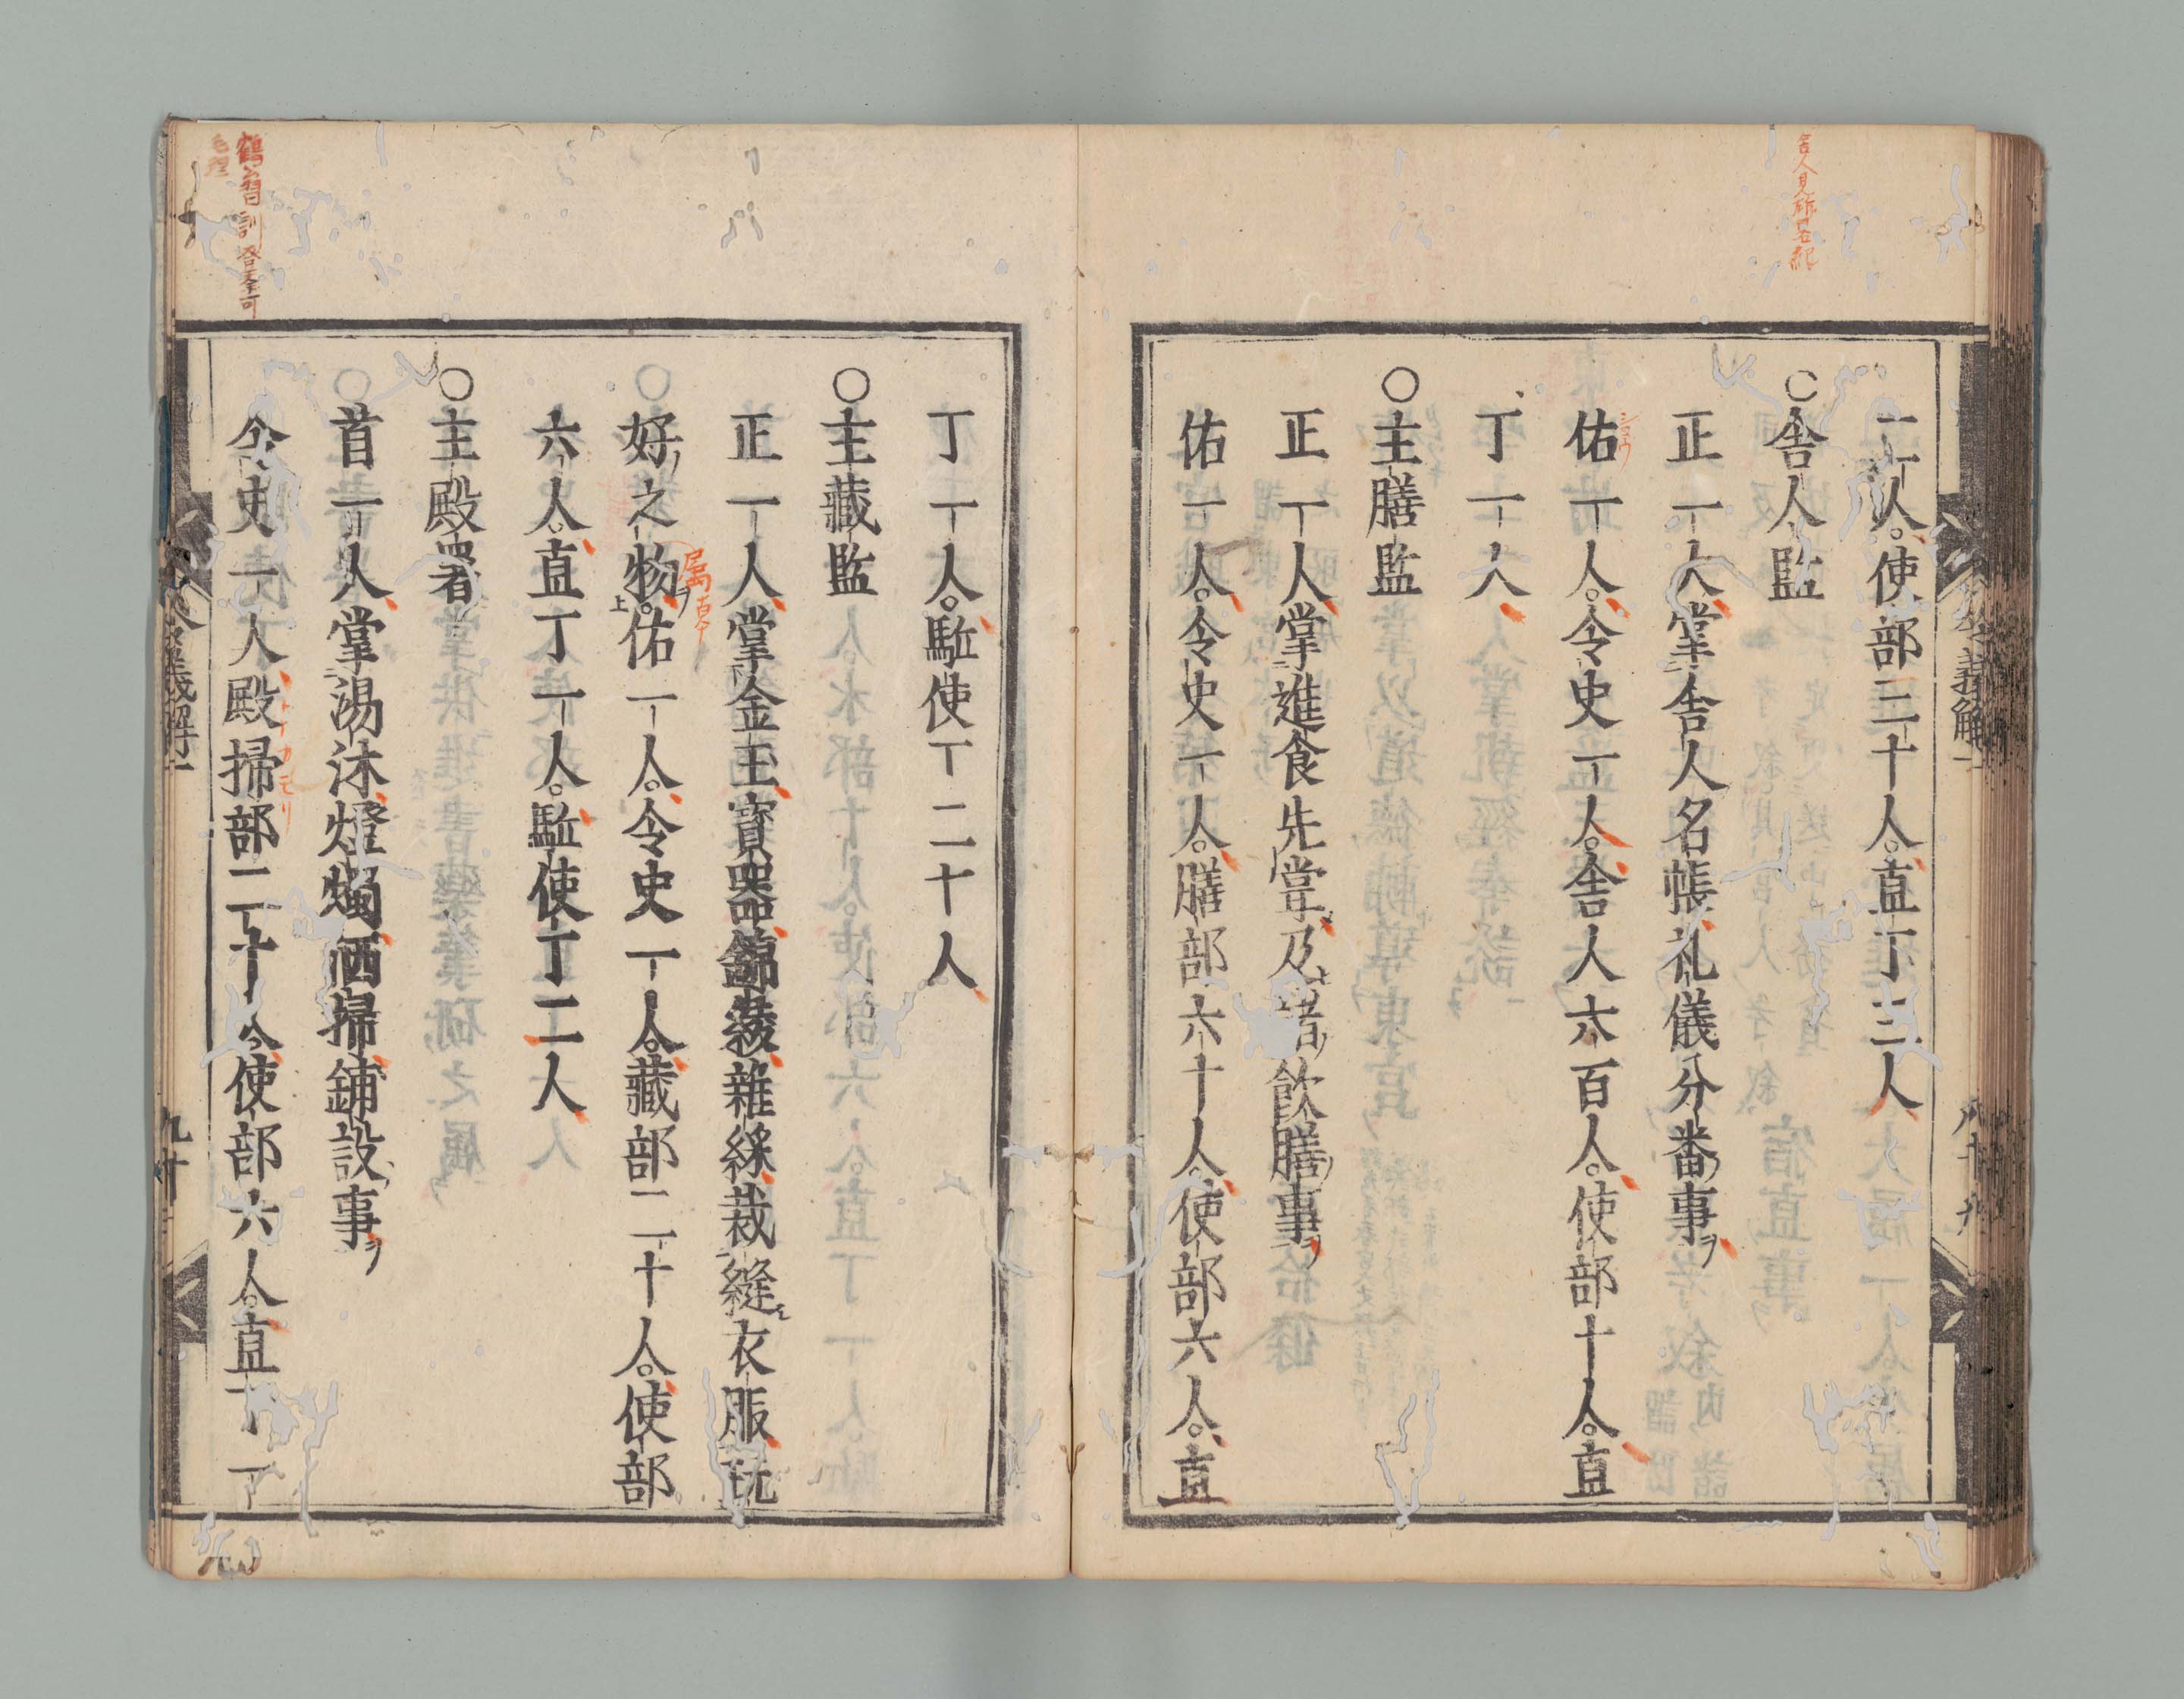 二人。使部三十人。直丁三人
○舎人監
正一人掌舎人名帳礼儀分番事ヲ
佑一人。令史一人。舎人六百人。使部十人。直
丁一人
○主膳監
正一人掌進食先甞及諸飲膳事ヲ
佑一人。令史一人。膳部六十人。使部六人。直
丁一人。駈使丁二十人
○主藏監
正一人掌金玉寳器錦綾雜綵裁縫衣服玩
好之物。佑一人。令史一人。藏部二十人。使部
六人。直丁一人。駈使丁二人
○主殿署
首一人掌湯沐燈燭洒掃鋪設事ヲ
令史一人殿掃部二十人使部六人。直丁一
令義解一
八十九
令義解一
九十